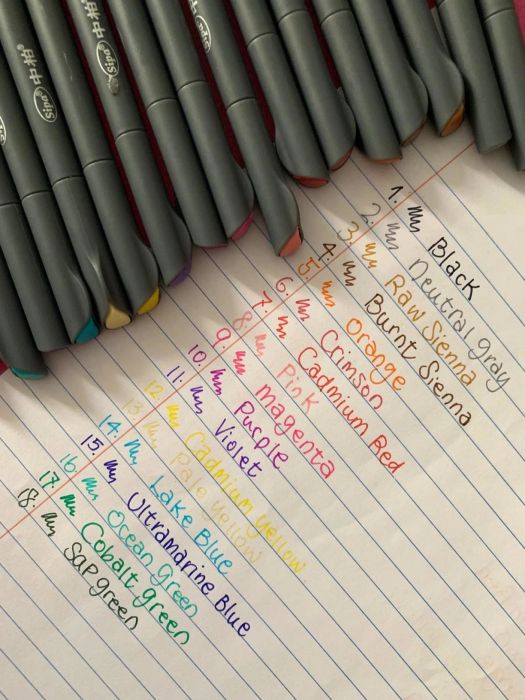 Sipa® 中柏
Sipa® 中柏
1. Black
2. Neutral gray
3. Raw Sienna
4. Burnt Sienna
5. Orange
6. Crimson
7. Cadmium Red
8. Pink
9. magenta
10. Purple
11. Violet
12. Cadmium yellow
13. Pale yellow
14. Lake Blue
15. Ultramarine Blue
16. Ocean Green
17. Cobalt green
18. Sap green